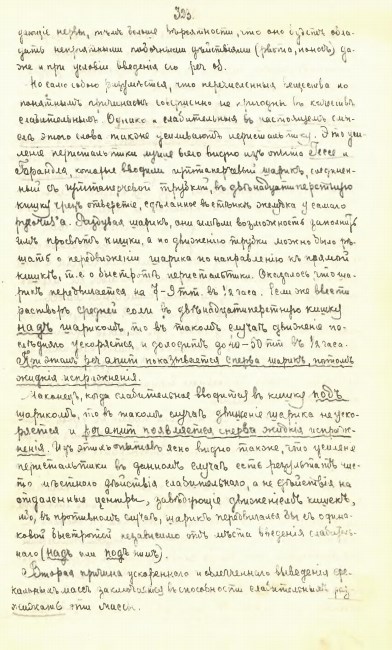 323.
дающiе нервы, тѣмъ больше вѣроятности, что оно будетъ обла-
дать непрiятными побочными дѣйствiями (рвота, поносъ) да-
же и при условiи введенiя его per os.
Но само собою разумѣется, что перечисленныя вещества по
понятнымъ причинамъ совершенно не пригодны въ качествѣ
слабительныхъ. Однако и слабительныя въ настоящемъ смы-
слѣ этого слова также усиливаютъ перистальтику. Это уси-
ленiе перистальтики лучше всего видно изъ опыта Гессе и
которые вводили гуттаперчевый шарикъ, соединен-
ный съ гуттаперчевой трубкой, въ двѣнадцатиперстную
кишку чрезъ отверстiе, сдѣланное въ стѣнкѣ желудка у самаго
Раздувая шарикъ, они имѣли возможность заполнить
имъ просвѣтъ кишки, а по движенiю трубки можно было рѣ-
шать о передвиженiи шарика по направленiю къ прямой
кишкѣ, т.е. о быстротѣ перистальтики. Оказалось что ша-
рикъ передвигается на въ 1/2 часа. Если же ввести
растворъ средней соли въ двѣнадцатиперстную кишку
надъ шарикомъ, то въ такомъ случаѣ движенiе по-
слѣдняго ускоряется и доходитъ до въ 1/2 часа.
При этомъ per anum показывается сперва шарикъ, потомъ
жидкiя испражненiя.
Наконецъ, когда слабительное вводится въ кишку подъ
шарикомъ, то въ такомъ случаѣ движенiе шарика не уско-
ряется и per anum появляются сперва жидкiя испраж-
ненiя. Изъ этихъ опытовъ ясно видно также, что усиленiе
перистальтики въ данномъ случаѣ есть результатъ чис-
то мѣстнаго дѣйствiя слабительнаго, а не дѣйствiя на
отдаленные центры, завѣдующiе движенiемъ кишекъ,
ибо, въ противномъ случаѣ, шарикъ передвигался бы съ одина-
ковой быстротой независимо отъ мѣста введенiя слабитель-
наго (надъ или подъ нимъ).
Вторая причина ускореннаго и облегченнаго выведенiя фе-
кальныхъ массъ заключается въ способности слабительныхъ раз-
жижать эти массы.